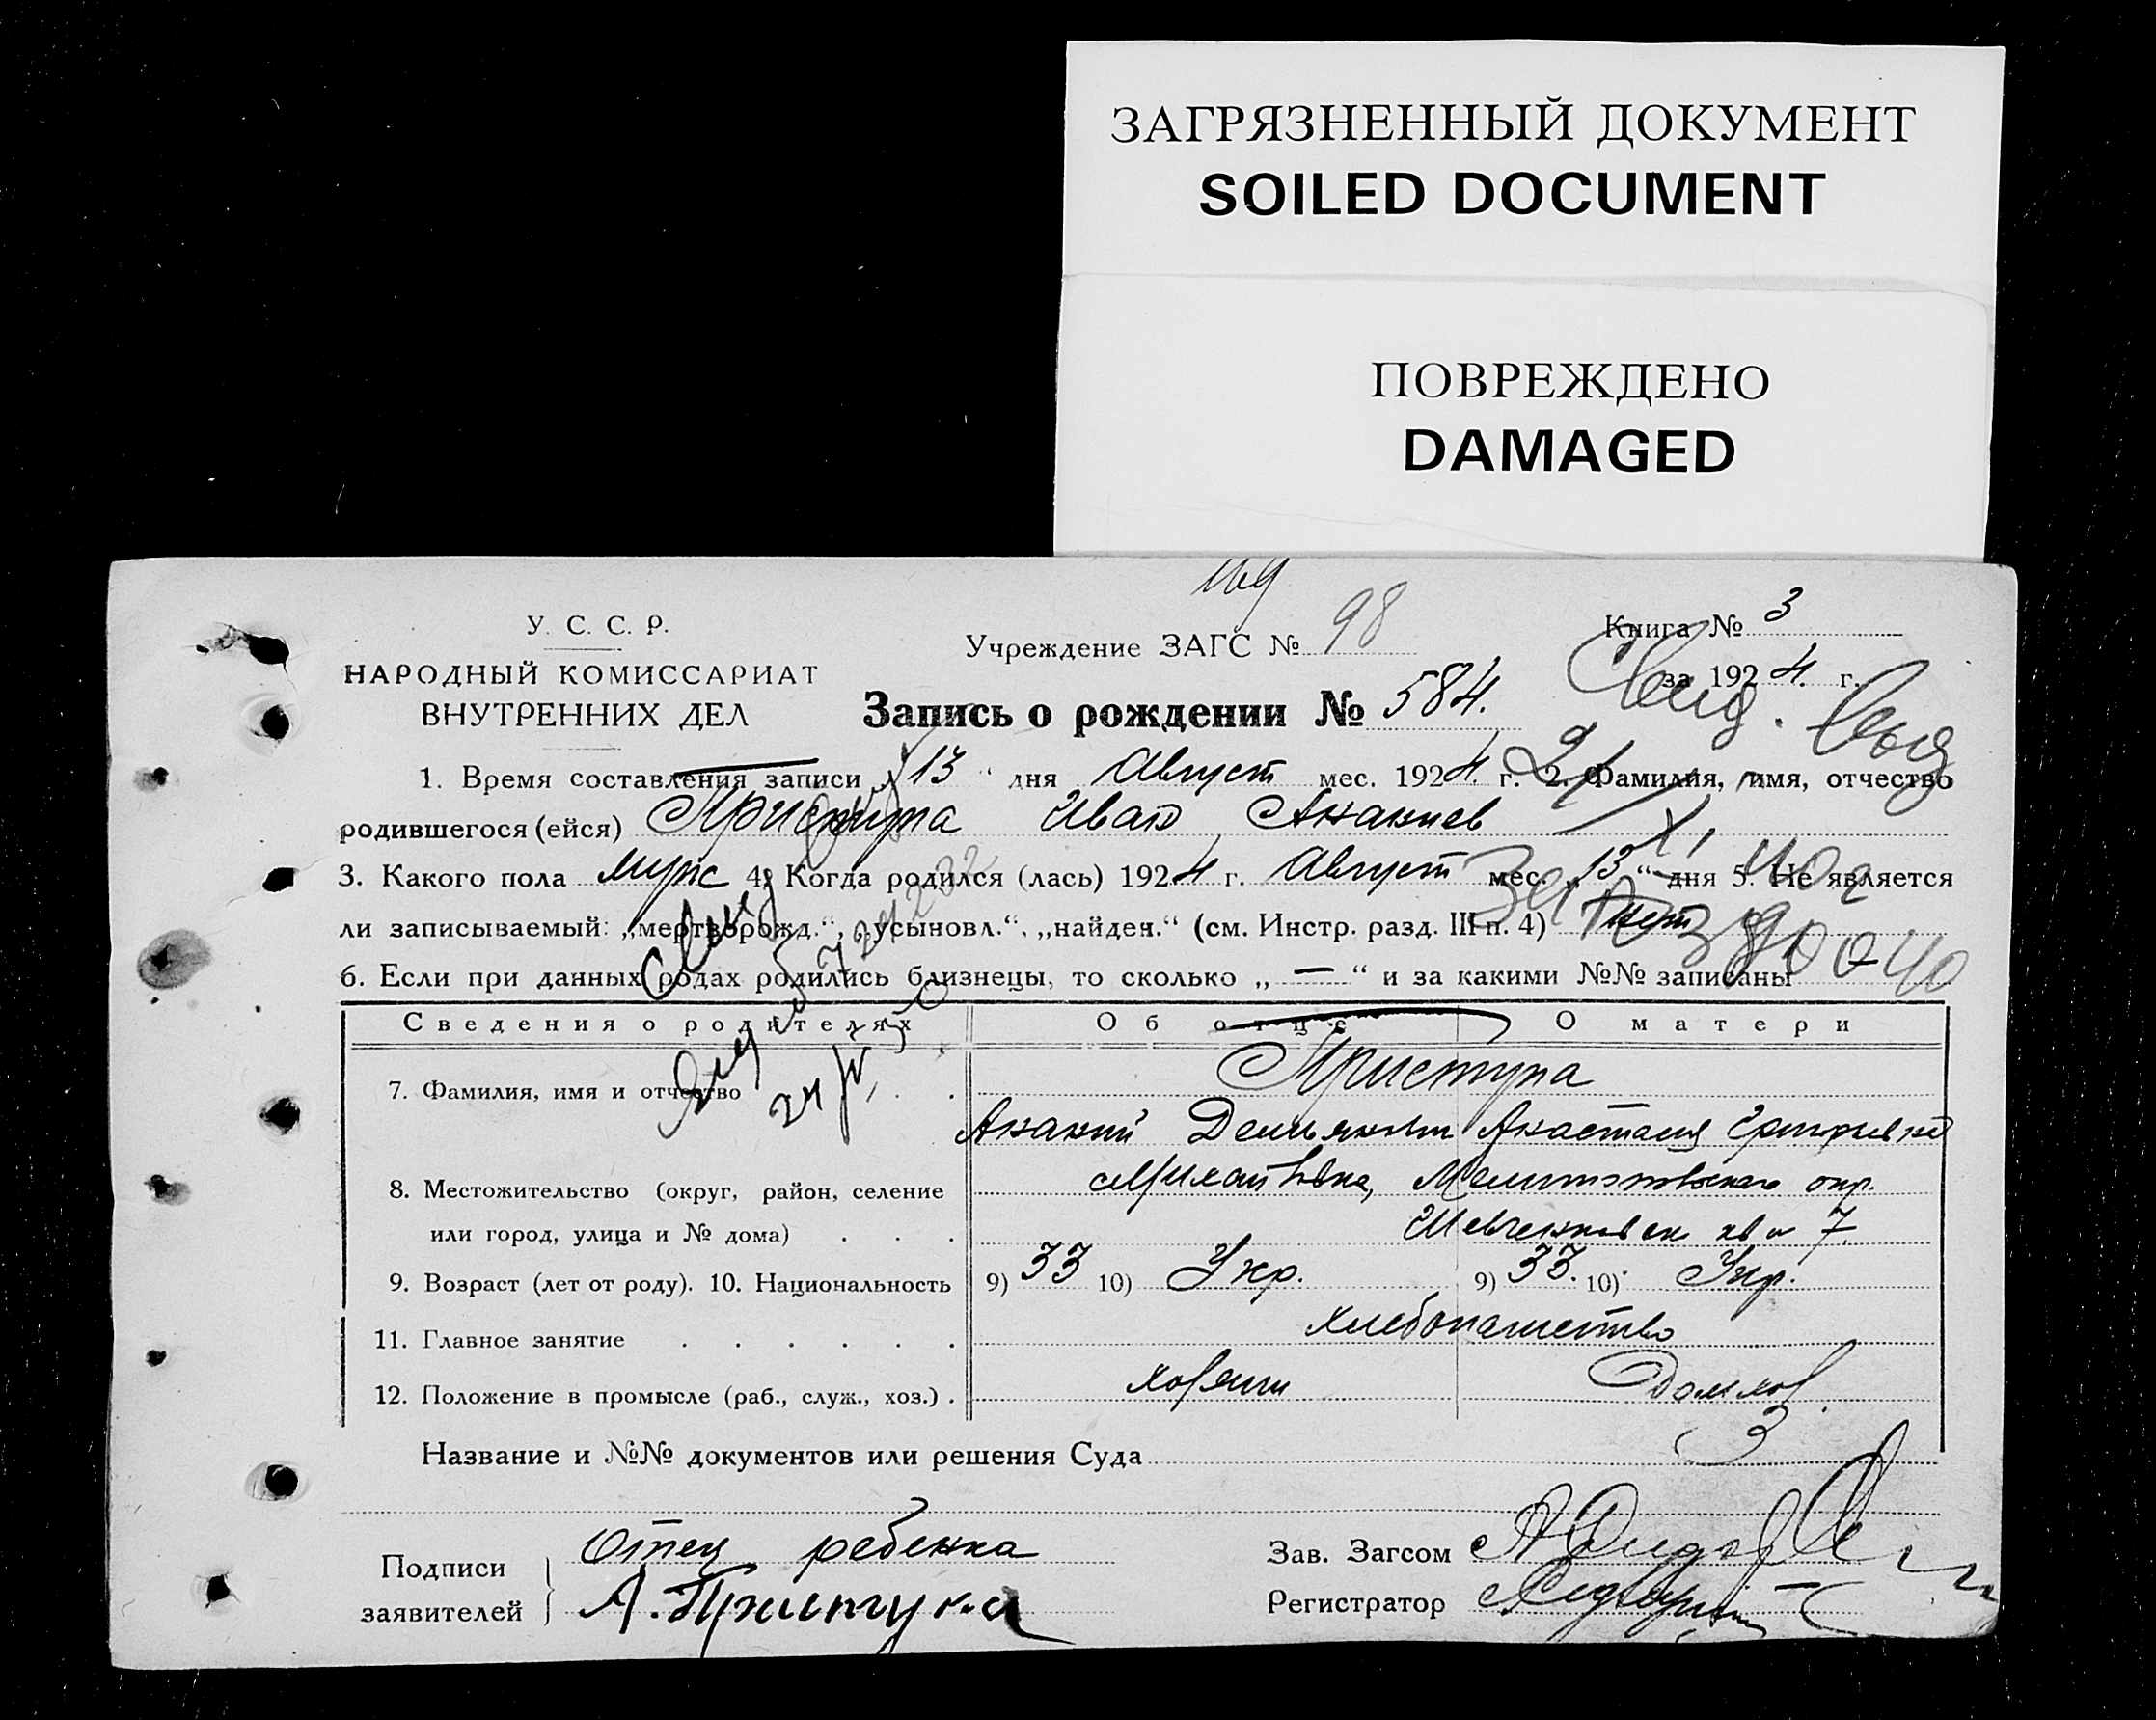 ЗАГРЯЗНЕННЫЙ ДОКУМЕНТ
SOILED DOCUMENT
ПОВРЕЖДЕНО
DAMAGED
У. С. С. Р.
НАРОДНЫЙ КОМИССАРИАТ
ВНУТРЕННИХ ДЕЛ
Учреждение ЗАГС № 98
Книга № 3
за 1924 г.
Запись о рождении № 584.
1. Время составления записи „13“ дня Август мес. 1924 г. 2. Фамилия, имя, отчество
родившегося (ейся) Приступа Иван Акакиев
3. Какого пола мужс 4. Когда родился (лась) 1924 г. Август мес. „13“ дня 5. Не является
ли записываемый: „мертворожд.“, „усыновл.“, „найден.“ (см. Инстр. разд. III п. 4) нет
6. Если при данных родах родились близнецы, то сколько „—“ и за какими №№ записаны
Сведения о родителях Об отце О матери
7. Фамилия, имя и отчество Приступа
Акакий Демьянович Анастасия
8. Местожительство (округ, район, селение Михайловка, Мелитопольскаго окр.
или город, улица и № дома) 7.
9. Возраст (лет от роду). 10. Национальность 9) 33 10) Укр. 9) 33. 10) Укр.
11. Главное занятие хлебопашество
12. Положение в промысле (раб., служ., хоз.) хозяин Домхоз.
Название и №№ документов или решения Суда
Подписи заявителей Отец ребенка
А. Приступа
Зав. Загсом
Регистратор